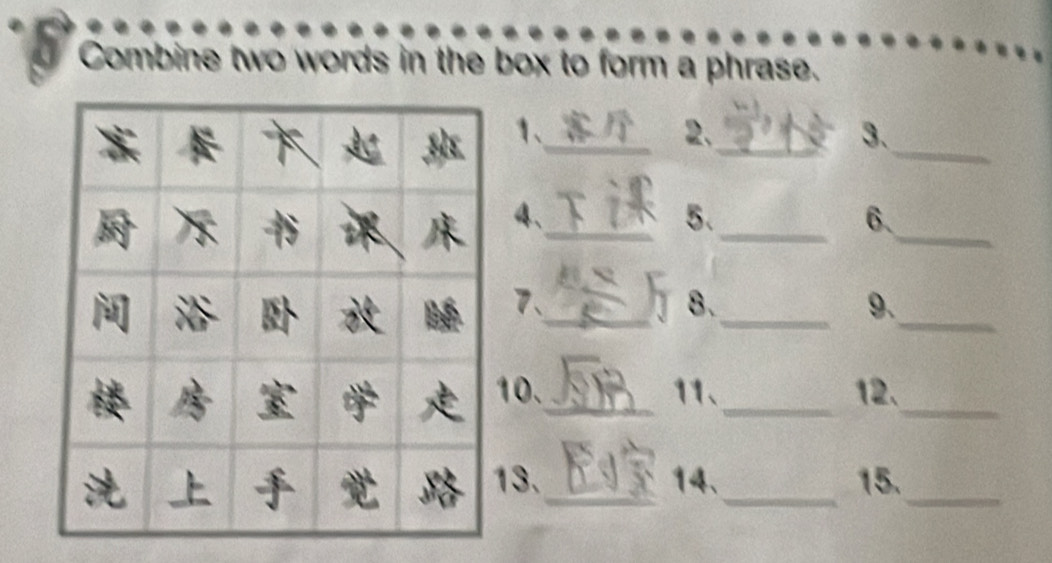 Combine two words in the box to form a phrase.
客 餐 下 起 班
厨 厅 书 课 床
间 浴 卧 放 睡
楼 房 室 学 走
洗 上 手 觉 路
1、客厅 2、学校 3、
4、下课 5、 6、
7、餐厅 8、 9、
10、厨房 11、 12、
13、卧室 14、 15、